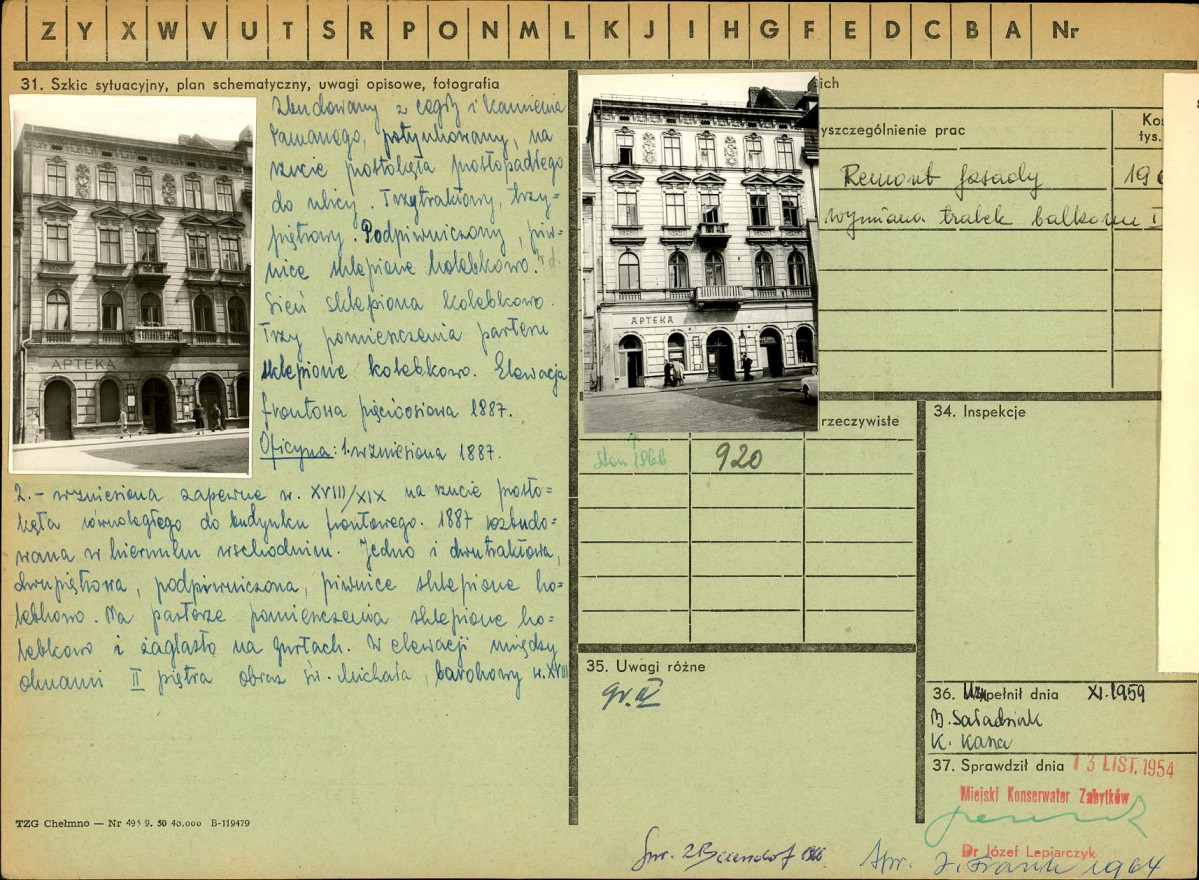 Z Y X W V U T S R P O N M L K J I H G F E D C B A Nr
31. Szkic sytuacyjny, plan schematyczny, uwagi opisowe, fotografia
Zbudowany z cegły i kamienia
łamanego, potynkowany, na
rzucie prostokąta prostopadłego
do ulicy. Trzytraktowy, trzy=
piętrowy. Podpiwniczony, piw=
nice sklepione kolebkowo.
Sień sklepiona kolebkowo.
Trzy pomieszczenia parteru
sklepione kolebkowo. Elewacja
frontowa pięcioosiowa 1887.
Oficyna: 1. wzniesiona 1887.
2.- wzniesiona zapewne w. XVIII/XIX na rzucie prosto=
kąta równoległego do budynku frontowego. 1887 rozbudo=
wana w kierunku wschodnim. Jedno i dwutraktowa,
dwupiętrowa, podpiwniczona, piwnice sklepione ko=
lebkowo. Na parterze pomieszczenia sklepione ko=
lebkowo i żaglasto na gurtach. W elewacji między
oknami II piętra obraz św. Michała, barokowy w. XVIII
APTEKA
TZG Chełmno — Nr 495 9. 50 40.000 B-119479
APTEKA
ich
yszczególnienie prac
Kos
tys.
Remont fasady
196
wymiana trabek balkonu I
rzeczywiste
Stan 1966
920
34. Inspekcje
35. Uwagi różne
gr. IV
36. Wypełnił dnia XI.1959
B. Sała
K. Kana
37. Sprawdził dnia 13 LIST. 1954
Miejski Konserwator Zabytków
Dr Józef Lepiarczyk
Spr. 1966
Spr. J. Frank 1964